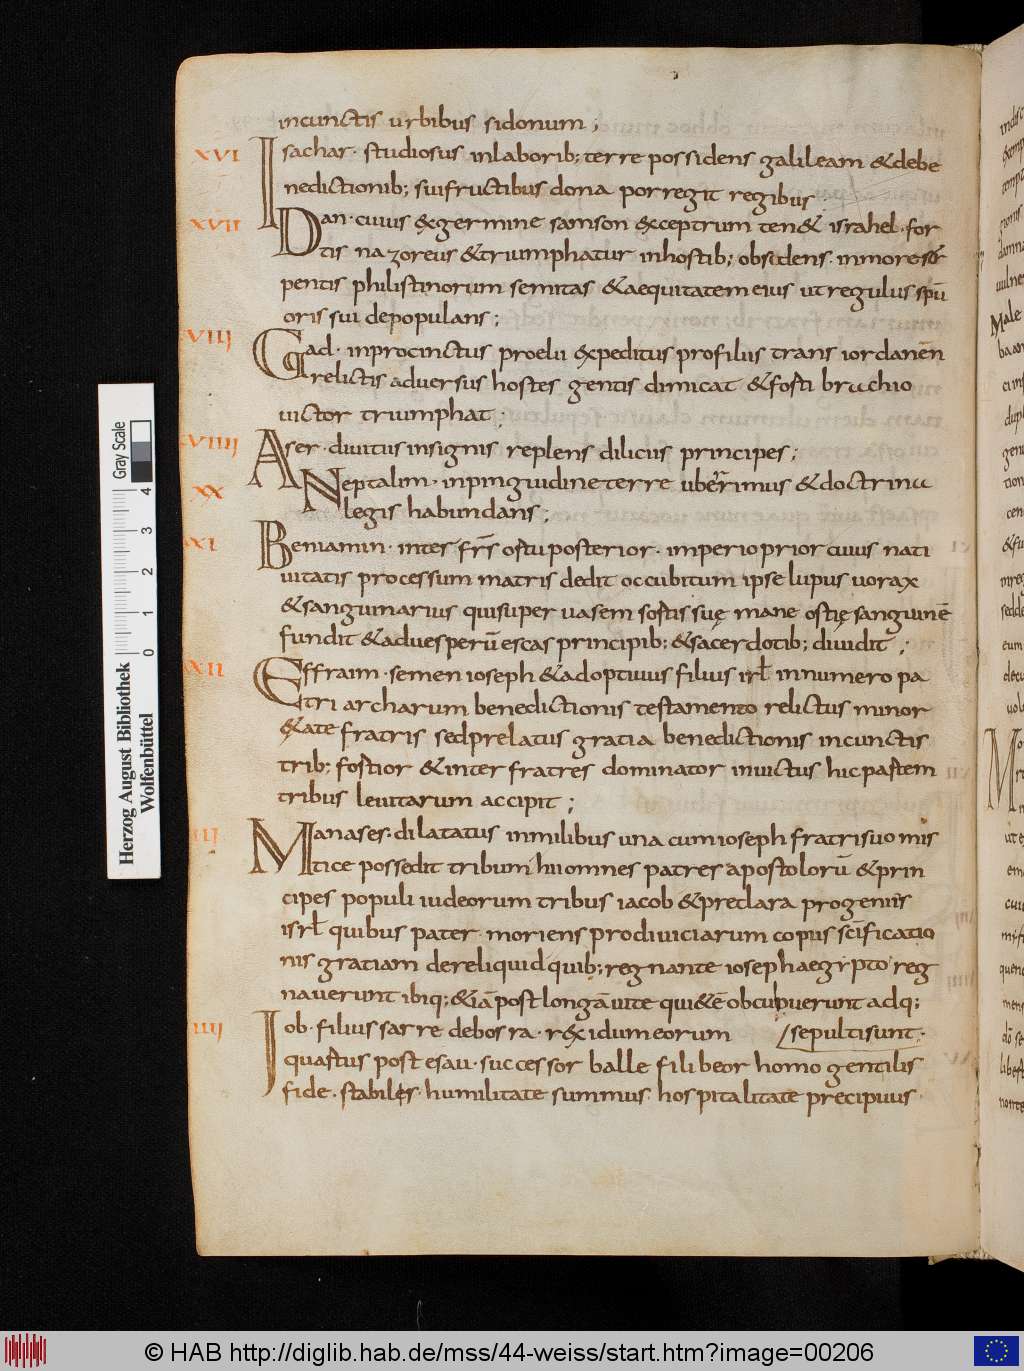 incunctis urbibus sidonum;
XVI Isachar· studiosus inlaborib; terre possidens galileam &debe
nedictionib; suifructibus dona porregit regibus
XVII Dan· cuius &germine samson exceptrum ten& israhel· for
tis nazoreus &triumphatur inhostib; obsidens· inmore ser
pentis philistinorum semitas &aequitatem eius ut regulus spū
oris sui depopulans;
VIII Gad· inprocinctus proelii expeditus profilus trans iordanen
relictis aduersus hostes gentis dimicat &forti brachio
uictor triumphat;
VIIII Aser· diuitus insignis replens diliciis principes;
XX Neptalim· inpinguidine terre uberrimus &doctrina
legis habundans;
XI Beniamin· inter frs ortu posterior· imperio prior cuius nati
uitatis processum matris dedit occubitum ipse lupus uorax
&sanguinarius quisuper uasem sortis suę mane ostię sanguinē
fundit &aduesperū escas principib; &sacerdotib; diuidit;
XII Effraim· semen ioseph &adoptiuus filius irl innumero pa
tri archarum benedictionis testamento relictus minor
&ate fratris sedprelatus gratia benedictionis incunctis
trib; fortior &inter fratres dominator inuictus hic partem
tribus leuitarum accipit;
IIJ Manases· dilatatus inmilibus una cumioseph fratrisuo mis
tice possedit tribum hii omnes patres apostolorū &prin
cipes populi iudeorum tribus iacob &preclara progeniis
isrl quibus pater· moriens prodiuiciarum copus scificatio
nis gratiam dereliquid quib; regnante ioseph aegypto reg
nauerunt ibiq; &iā post longā uite qui&ē obcubuerunt adq;
IIIJ Iob· filius sarre debosra· rex idumeorum /sepulti sunt·
quartus post esau· successor balle fili beor homo gentilis
fide· stabiles· humilitate summus hospitalitate precipuus
Gray Scale
0 1 2 3 4
Herzog August Bibliothek
Wolfenbüttel
© HAB http://diglib.hab.de/mss/44-weiss/start.htm?image=00206